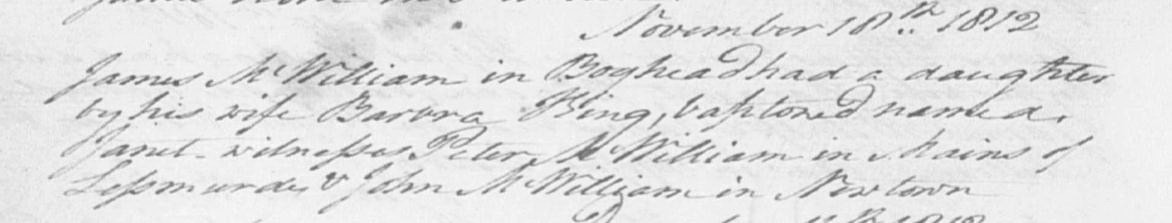 November 18th. 1812
James McWilliam in Boghead had a daughter
by his wife Barbra King, baptized named
Janet. witnesses Peter McWilliam in Mains of
Lessmurdy & John McWilliam in Newtown